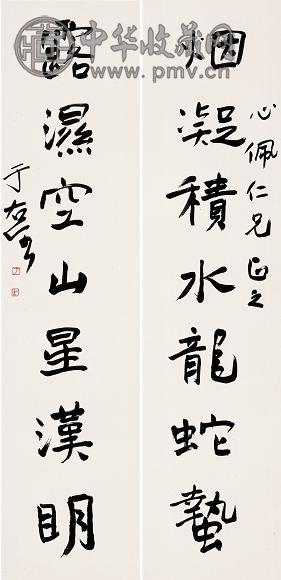 中华收藏网
www.pmv.cn
烟凝積水龍蛇蟄
心佩仁兄正之
露濕空山星漢明
于右任